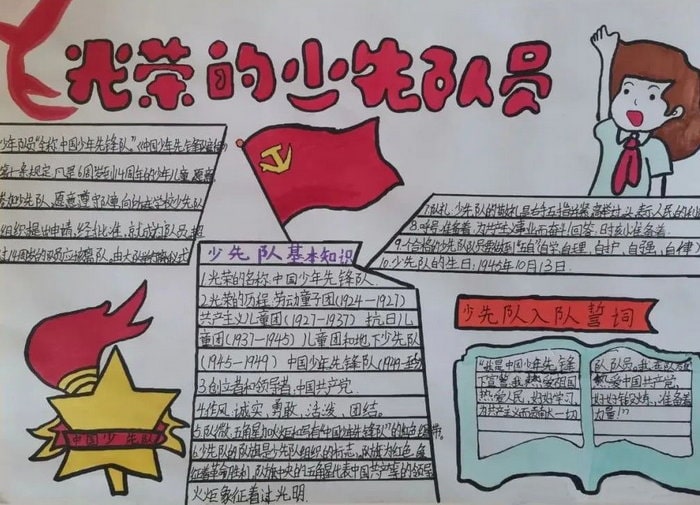 光荣的少先队员
少年队员"全称中国少年先锋队"《中国少年先锋队章程》
规定,凡是6周岁到14周年的少年儿童,愿意
参加少先队,愿意遵守队章,向所在学校少先队
组织提出申请,经批准,就成为队员,超
过14周岁的队员应该离队,由大队举行离队仪式
少先队基本知识
1.光荣的名称,中国少年先锋队.
2.光荣的历程,劳动童子团(1924—1927)
共产主义儿童团(1927-1937) 抗日儿
童团(1937—1945)儿童团和地下少先队
(1945—1949) 中国少年先锋队(1949-至今)
3.创立者和领导者,中国共产党.
4.作风,诚实,勇敢,活泼,团结。
5.队徽,五角星加火炬和写有"中国少年先锋队"的红色绶带。
6.少先队的队旗是少先队组织的标志,队旗为红色,象
征着革命胜利,队旗中央的五角星代表中国共产党的领导
火炬象征着光明.
7.队礼,少先队的敬礼是右手五指并拢,高举过头,表示人民的利
8.呼号,准备着,为共产主义事业而奋斗!回答,时刻准备着.
9.合格的少先队队员要做到"五自"自学,自理,自护,自强,自律)
10.少先队的生日,1945年10月13日.
少先队入队誓词
"我是中国少年先锋
队队员。我在队旗
下宣誓,我热爱祖国
热爱中国共产党,
热爱人民,好好学习
好好锻炼,准备着
为共产主义而贡献一切
力量!"
中国少先队